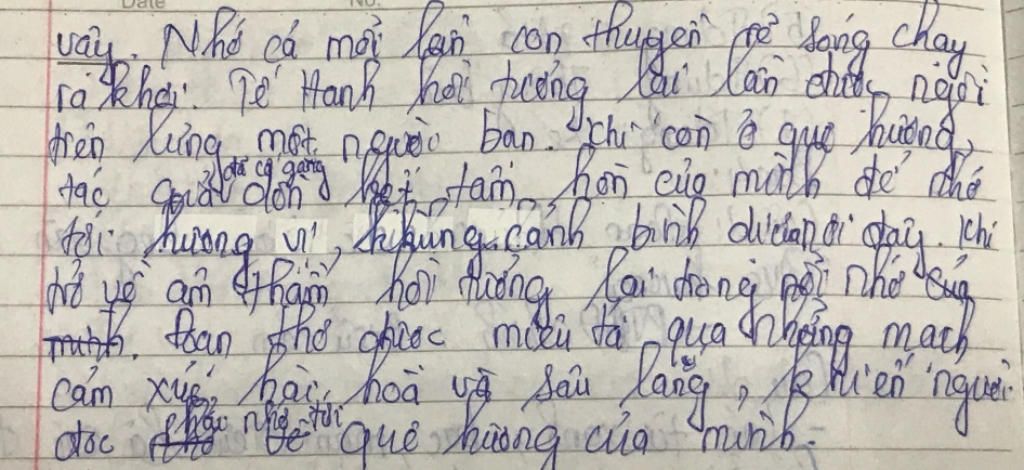 vậy. Nhớ cả mỗi lần con thuyền rẽ sóng chạy
ra khơi. Tế Hanh hồi tưởng lại lần được ngồi
trên lưng một người bạn. Khi còn ở quê hương,
tác giả đã cố gắng dồn hết tâm hồn của mình để nhớ
tới hương vị, khung cảnh bình dị nơi đây. Khi
trở về âm thầm hồi tưởng lại trong nỗi nhớ của
mình. Đoạn thơ được miêu tả qua những mạch
cảm xúc hài hoà và sâu lắng, khiến người
đọc phải nghĩ tới quê hương của mình.